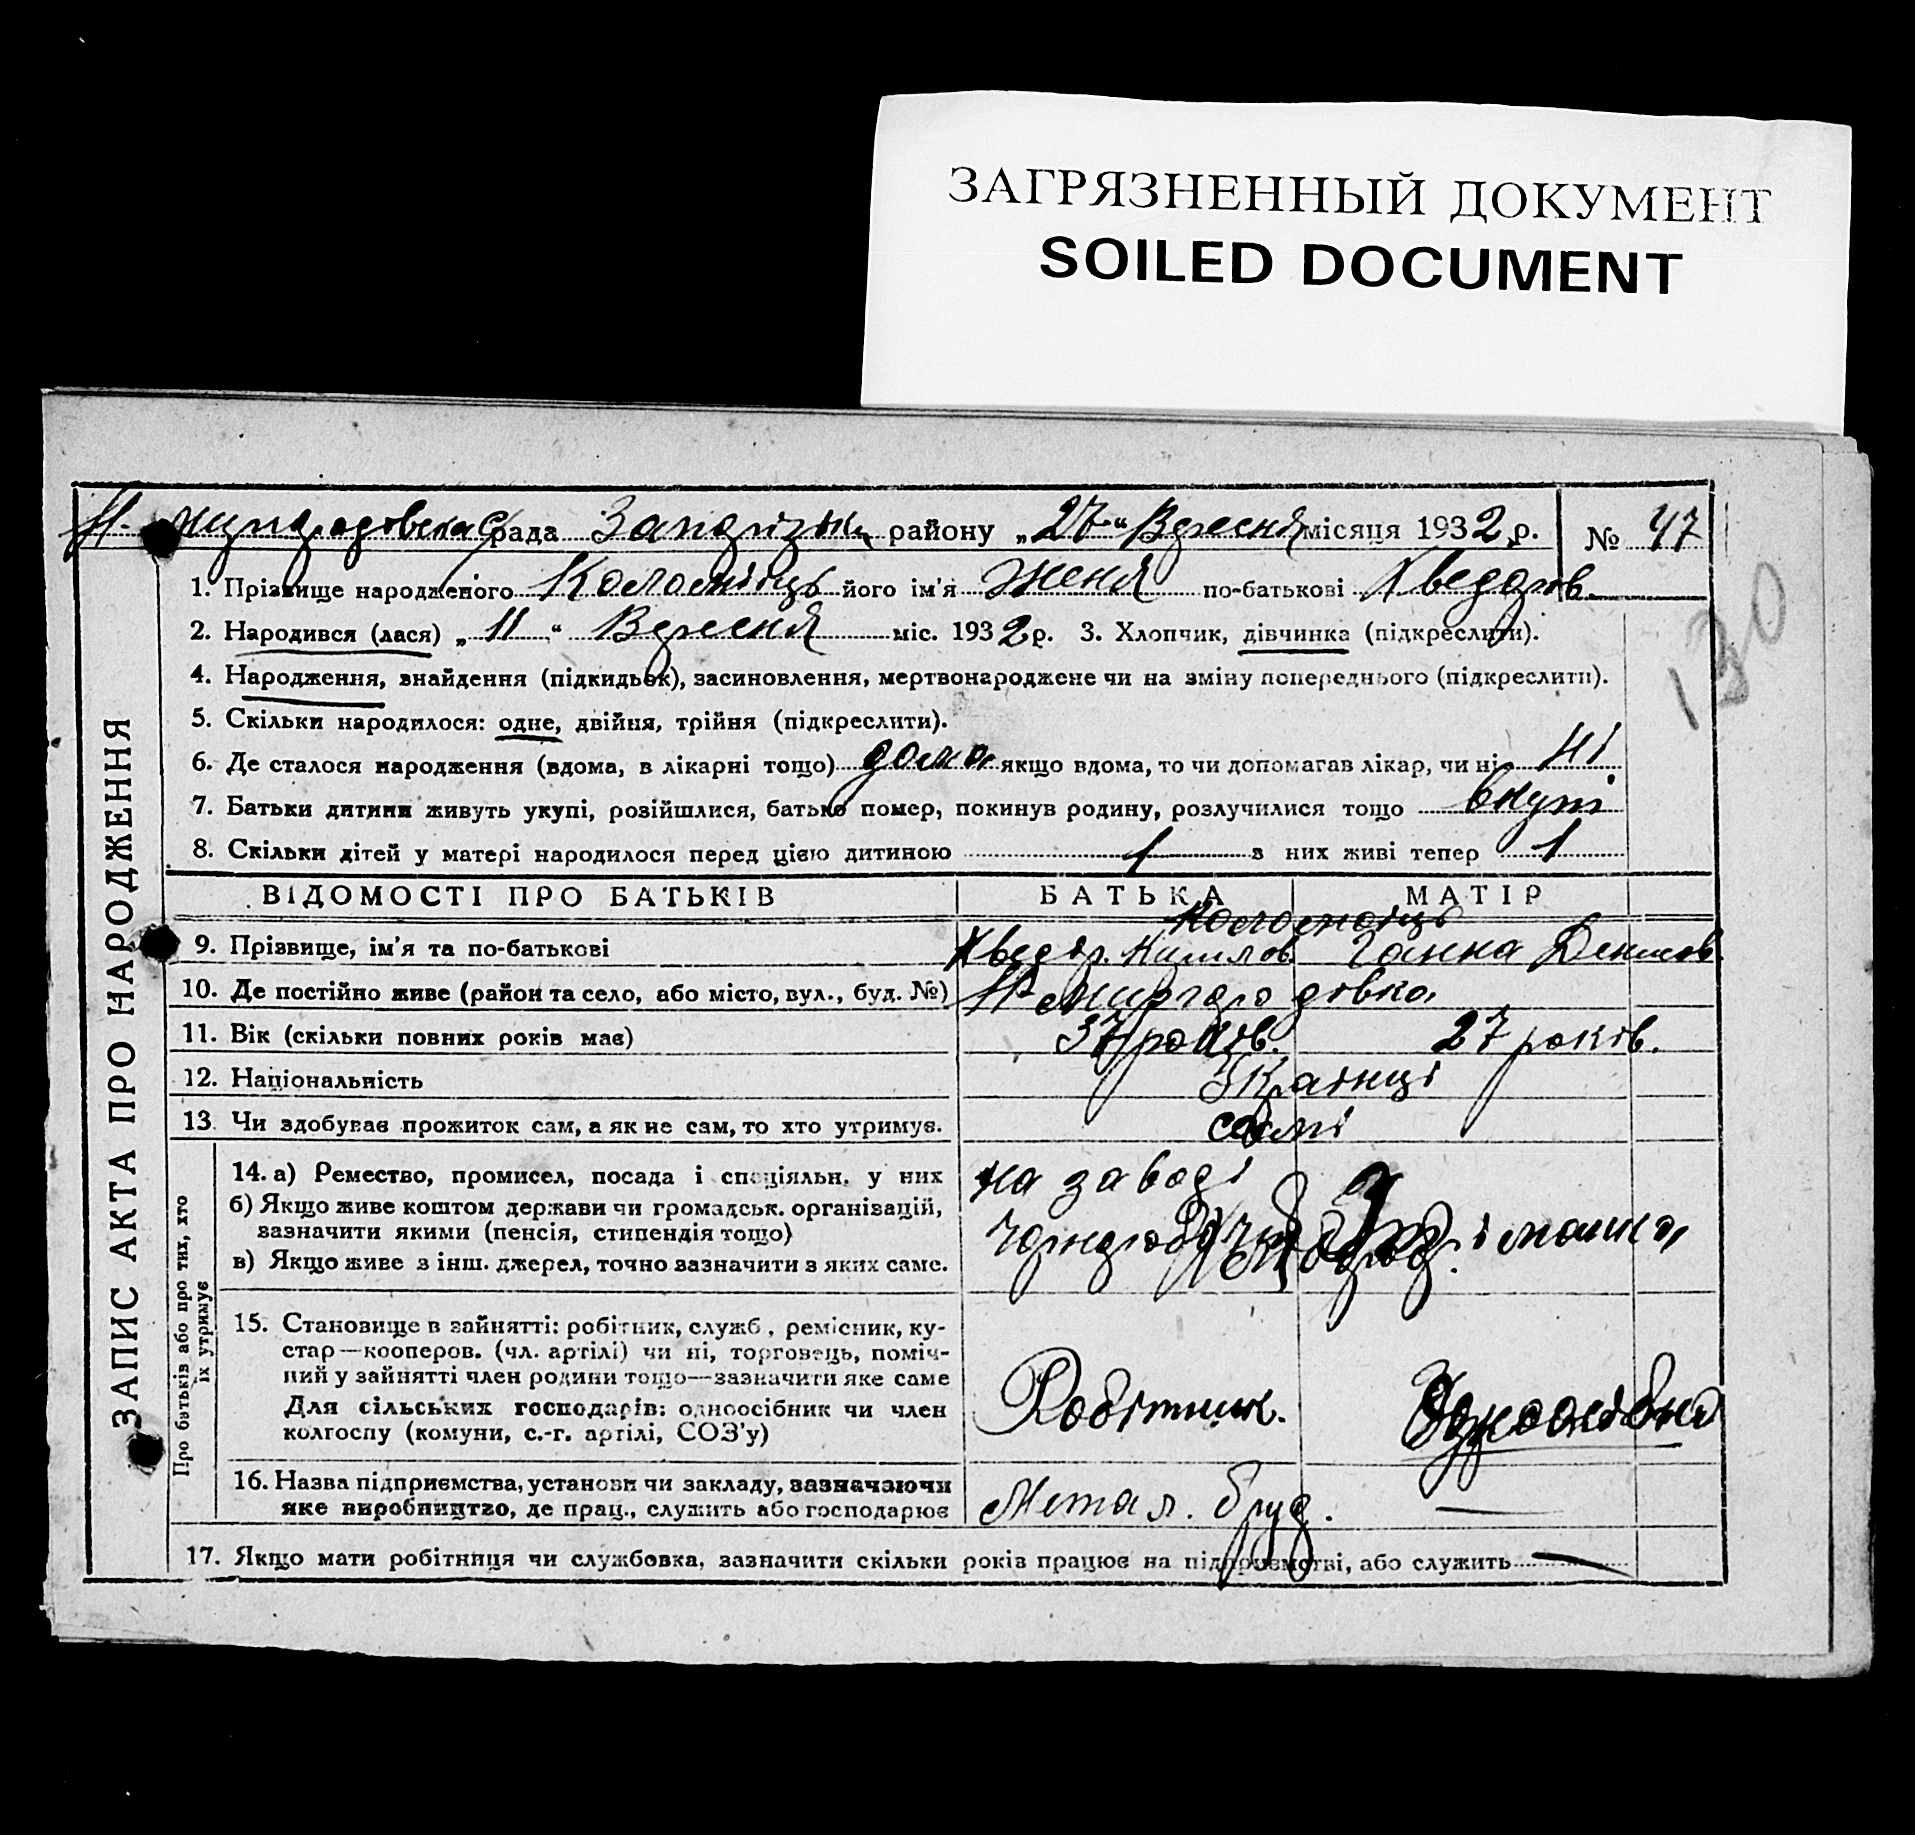 ЗАГРЯЗНЕННЫЙ ДОКУМЕНТ
SOILED DOCUMENT
рада район у „27“ Вересня місяця 1932 р. № 47
1. Прізвище народженого Коломієць його ім'я Женя по-батькові Хведоров.
2. Народився (лася) „11“ Вересня міс. 1932 р. 3. Хлопчик, дівчинка (підкреслити).
4. Народження, знайдення (підкидьок), засиновлення, мертвонароджене чи на зміну попереднього (підкреслити).
5. Скільки народилося: одне, двійня, трійня (підкреслити).
6. Де сталося народження (вдома, в лікарні тощо) дома якщо вдома, то чи допомагав лікар, чи ні ні
7. Батьки дитини живуть укупі, розійшлися, батько помер, покинув родину, розлучилися тощо вкупі
8. Скільки дітей у матері народилося перед цією дитиною 1 з них живі тепер 1
ЗАПИС АКТА ПРО НАРОДЖЕННЯ
ВІДОМОСТІ ПРО БАТЬКІВ БАТЬКА МАТІР
Коломієць
9. Прізвище, ім'я та по-батькові Хведір Кирилов. Ганна Денисов.
10. Де постійно живе (район та село, або місто, вул., буд. №) Н-Миргородовка
11. Вік (скільки повних років має) 37 років. 27 років.
12. Національність Українці
13. Чи здобуває прожиток сам, а як не сам, то хто утримує. самі
Про батьків або про тих, хто їх утримує
14. а) Ремество, промисел, посада і спеціяльн. у них на заводі
б) Якщо живе коштом держави чи громадськ. організацій,
зазначити якими (пенсія, стипендія тощо)
в) Якщо живе з інш. джерел, точно зазначити з яких саме.
15. Становище в зайнятті: робітник, служб., ремісник, ку-
стар—кооперов. (чл. артілі) чи ні, торговець, поміч-
ний у зайнятті член родини тощо—зазначити яке саме
Для сільських господарів: одноосібник чи член
колгоспу (комуни, с.-г. артілі, СОЗ'у)
Робітник.
16. Назва підприємства, установи чи закладу, зазначаючи
яке виробництво, де прац., служить або господарює
Метал.
17. Якщо мати робітниця чи службовка, зазначити скільки років працює на підприємстві, або служить —